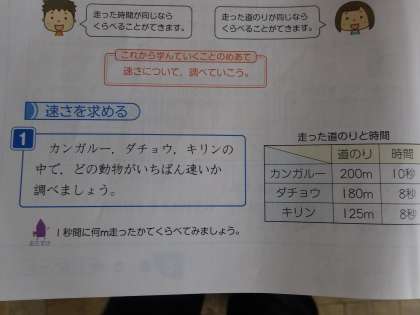 走った時間が同じなら
くらべることができます。
走った道のりが同じなら
くらべることができます。
これから学んでいくことのめあて
速さについて，調べていこう。
速さを求める
1
カンガルー，ダチョウ，キリンの
中で，どの動物がいちばん速いか
調べましょう。
走った道のりと時間
道のり 時間
カンガルー 200m 10秒
ダチョウ 180m 8秒
キリン 125m 8秒
1秒間に何m走ったかでくらべてみましょう。